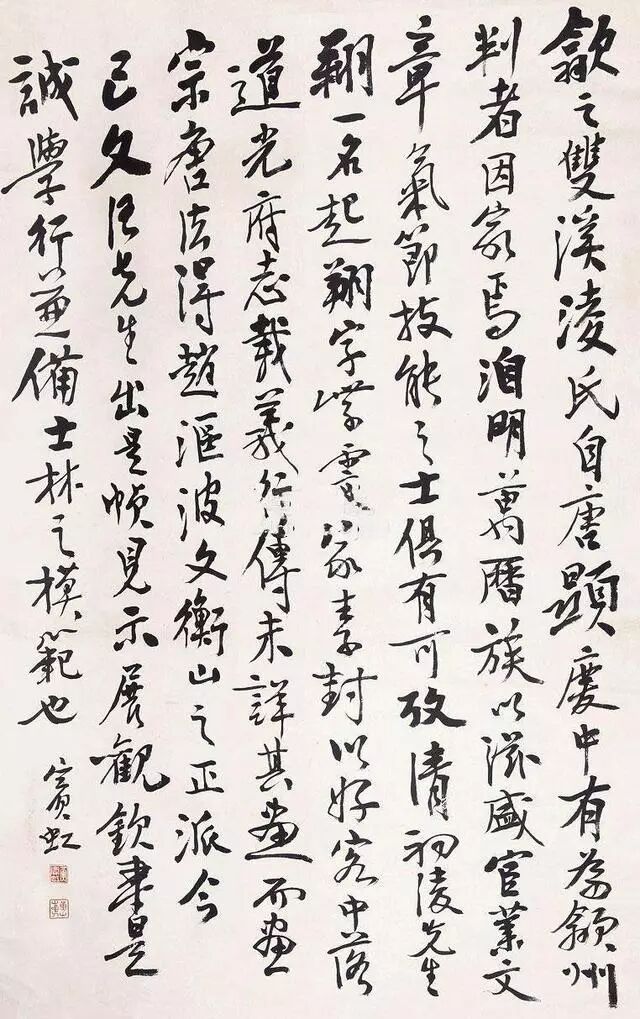 歙之雙溪淩氏自唐顯慶中有為歙州
判者因家焉洎明萬曆族以滋盛官業文
章氣節技能之士俱有可攷清初淩先生
翽一名起翔字紫霞家素封以好客中落
道光府志載義行傳未詳其畫而畫
宗唐法得趙漚波文衡山之正派今
已文治先生出是幀見示展觀欽聿是
誠學行並備士林之模範也
賓虹